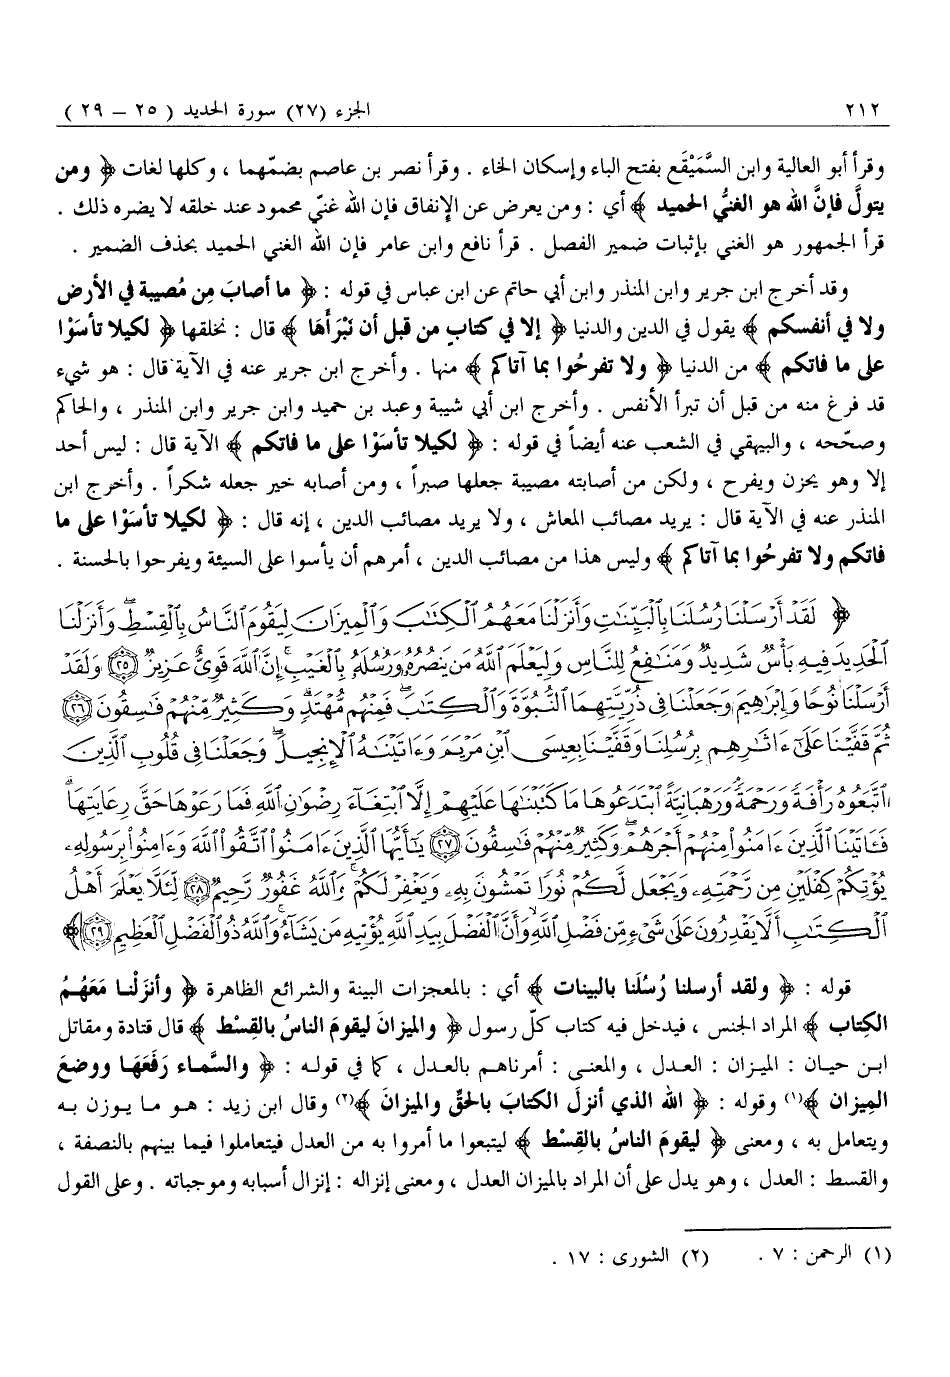 ٢١٢ الجزء (٢٧) سورة الحديد ( ٢٥ ـ ٢٩ )
وقرأ أبو العالية وابن السَّمَيْقَع بفتح الباء وإسكان الخاء . وقرأ نصر بن عاصم بضمّهما ، وكلها لغات ﴿ ومن
يتولَّ فإنَّ الله هو الغنيُّ الحميد ﴾ أي : ومن يعرض عن الإِنفاق فإن الله غنيّ محمود عند خلقه لا يضره ذلك .
قرأ الجمهور هو الغني بإثبات ضمير الفصل . قرأ نافع وابن عامر فإن الله الغني الحميد بحذف الضمير .
وقد أخرج ابن جرير وابن المنذر وابن أبي حاتم عن ابن عباس في قوله : ﴿ ما أصابَ مِن مُصيبة في الأرض
ولا في أنفسكم ﴾ يقول في الدين والدنيا ﴿ إلا في كتابٍ من قبل أن نَبْرَأَهَا ﴾ قال : نخلقها ﴿ لكيلا تأسَوْا
على ما فاتكم ﴾ من الدنيا ﴿ ولا تفرحُوا بما آتاكم ﴾ منها . وأخرج ابن جرير عنه في الآية قال : هو شيء
قد فرغ منه من قبل أن تبرأ الأنفس . وأخرج ابن أبي شيبة وعبد بن حميد وابن جرير وابن المنذر ، والحاكم
وصحّحه ، والبيهقي في الشعب عنه أيضاً في قوله : ﴿ لكيلا تأسَوْا على ما فاتكم ﴾ الآية قال : ليس أحد
إلا وهو يحزن ويفرح ، ولكن من أصابته مصيبة جعلها صبراً ، ومن أصابه خير جعله شكراً . وأخرج ابن
المنذر عنه في الآية قال : يريد مصائب المعاش ، ولا يريد مصائب الدين ، إنه قال : ﴿ لكيلا تأسَوْا على ما
فاتكم ولا تفرحُوا بما آتاكم ﴾ وليس هذا من مصائب الدين ، أمرهم أن يأسوا على السيئة ويفرحوا بالحسنة .
﴿ لَقَدْ أَرْسَلْنَا رُسُلَنَا بِالْبَيِّنَٰتِ وَأَنزَلْنَا مَعَهُمُ الْكِتَٰبَ وَالْمِيزَانَ لِيَقُومَ النَّاسُ بِالْقِسْطِ ۖ وَأَنزَلْنَا
الْحَدِيدَ فِيهِ بَأْسٌ شَدِيدٌ وَمَنَٰفِعُ لِلنَّاسِ وَلِيَعْلَمَ اللَّهُ مَن يَنصُرُهُۥ وَرُسُلَهُۥ بِالْغَيْبِ ۚ إِنَّ اللَّهَ قَوِيٌّ عَزِيزٌ ﴿٢٥﴾ وَلَقَدْ
أَرْسَلْنَا نُوحًا وَإِبْرَٰهِيمَ وَجَعَلْنَا فِي ذُرِّيَّتِهِمَا النُّبُوَّةَ وَالْكِتَٰبَ ۖ فَمِنْهُم مُّهْتَدٍ ۖ وَكَثِيرٌ مِّنْهُمْ فَٰسِقُونَ ﴿٢٦﴾
ثُمَّ قَفَّيْنَا عَلَىٰٓ ءَاثَٰرِهِم بِرُسُلِنَا وَقَفَّيْنَا بِعِيسَى ابْنِ مَرْيَمَ وَءَاتَيْنَٰهُ الْإِنجِيلَ ۖ وَجَعَلْنَا فِي قُلُوبِ الَّذِينَ
اتَّبَعُوهُ رَأْفَةً وَرَحْمَةً وَرَهْبَانِيَّةً ابْتَدَعُوهَا مَا كَتَبْنَٰهَا عَلَيْهِمْ إِلَّا ابْتِغَآءَ رِضْوَٰنِ اللَّهِ فَمَا رَعَوْهَا حَقَّ رِعَايَتِهَا ۖ
فَـَٔاتَيْنَا الَّذِينَ ءَامَنُوا مِنْهُمْ أَجْرَهُمْ ۖ وَكَثِيرٌ مِّنْهُمْ فَٰسِقُونَ ﴿٢٧﴾ يَٰٓأَيُّهَا الَّذِينَ ءَامَنُوا اتَّقُوا اللَّهَ وَءَامِنُوا بِرَسُولِهِۦ
يُؤْتِكُمْ كِفْلَيْنِ مِن رَّحْمَتِهِۦ وَيَجْعَل لَّكُمْ نُورًا تَمْشُونَ بِهِۦ وَيَغْفِرْ لَكُمْ ۚ وَاللَّهُ غَفُورٌ رَّحِيمٌ ﴿٢٨﴾ لِّئَلَّا يَعْلَمَ أَهْلُ
الْكِتَٰبِ أَلَّا يَقْدِرُونَ عَلَىٰ شَيْءٍ مِّن فَضْلِ اللَّهِ ۙ وَأَنَّ الْفَضْلَ بِيَدِ اللَّهِ يُؤْتِيهِ مَن يَشَآءُ ۚ وَاللَّهُ ذُو الْفَضْلِ الْعَظِيمِ ﴿٢٩﴾ ﴾
قوله : ﴿ ولقد أرسلنا رُسُلَنا بالبينات ﴾ أي : بالمعجزات البينة والشرائع الظاهرة ﴿ وأنزَلْنـا مَعَهُـمُ
الكِتاب ﴾ المراد الجنس ، فيدخل فيه كتاب كلّ رسول ﴿ والميزانَ ليقومَ الناسُ بالقِسْط ﴾ قال قتادة ومقاتل
ابـن حيـان : الميـزان : العـدل ، والمعنـى : أمرناهـم بالعـدل ، كما في قولـه : ﴿ والسَّمـاء رَفَعَهَـا ووضعَ
المِيزان ﴾(١) وقوله : ﴿ الله الذي أنزلَ الكتابَ بالحقِّ والميزانَ ﴾(٢) وقال ابن زيد : هـو مـا يـوزن بـه
ويتعامل به ، ومعنى ﴿ ليقومَ الناسُ بالقِسْط ﴾ ليتبعوا ما أمروا به من العدل فيتعاملوا فيما بينهم بالنصفة ،
والقسط : العدل ، وهو يدل على أن المراد بالميزان العدل ، ومعنى إنزاله : إنزال أسبابه وموجباته . وعلى القول
(١) الرحمن : ٧ . (٢) الشورى : ١٧ .